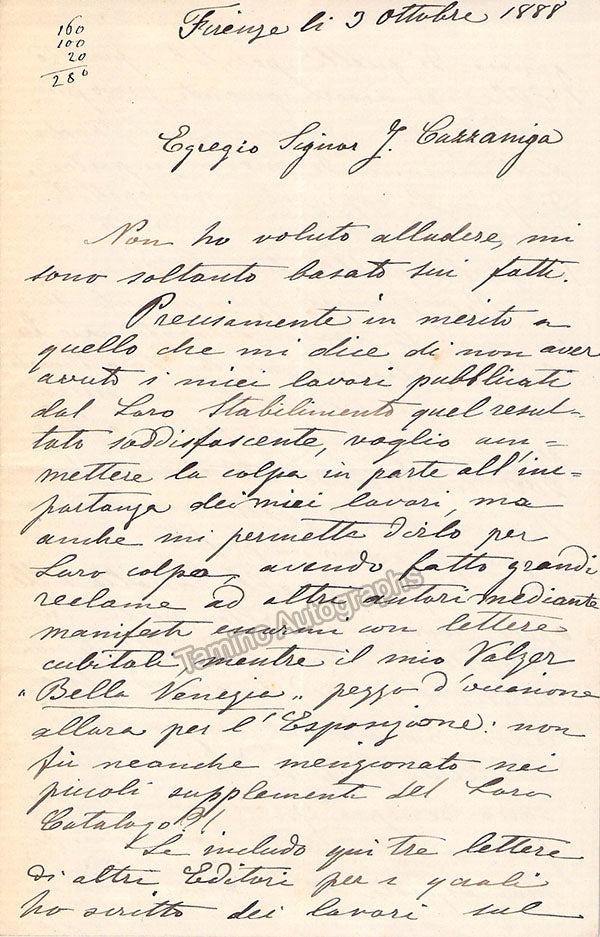 160
100
20
280
Firenze li 3 Ottobre 1888
Egregio Signor J. Cazzaniga
Non ho voluto alludere, mi
sono soltanto basato sui fatti.
Precisamente in merito a
quello che mi dice di non aver
avuto i miei lavori pubblicati
dal Loro Stabilimento quel resul-
tato soddisfascente, voglio am-
mettere la colpa in parte all'im-
portanza dei miei lavori, ma
anche mi permette dirlo per
Loro colpa, avendo fatto grandi
reclame ad altri autori mediante
manifesti enormi con lettere
cubitali mentre il mio Valzer
"Bella Venezia" pezzo d'occasione
allora per l'Esposizione: non
fù neanche menzionato nei
piccoli supplementi del Loro
Catalogo?!
Le includo qui tre lettere
di altri Editori per i quali
ho scritto dei lavori sul
Tamino Autographs